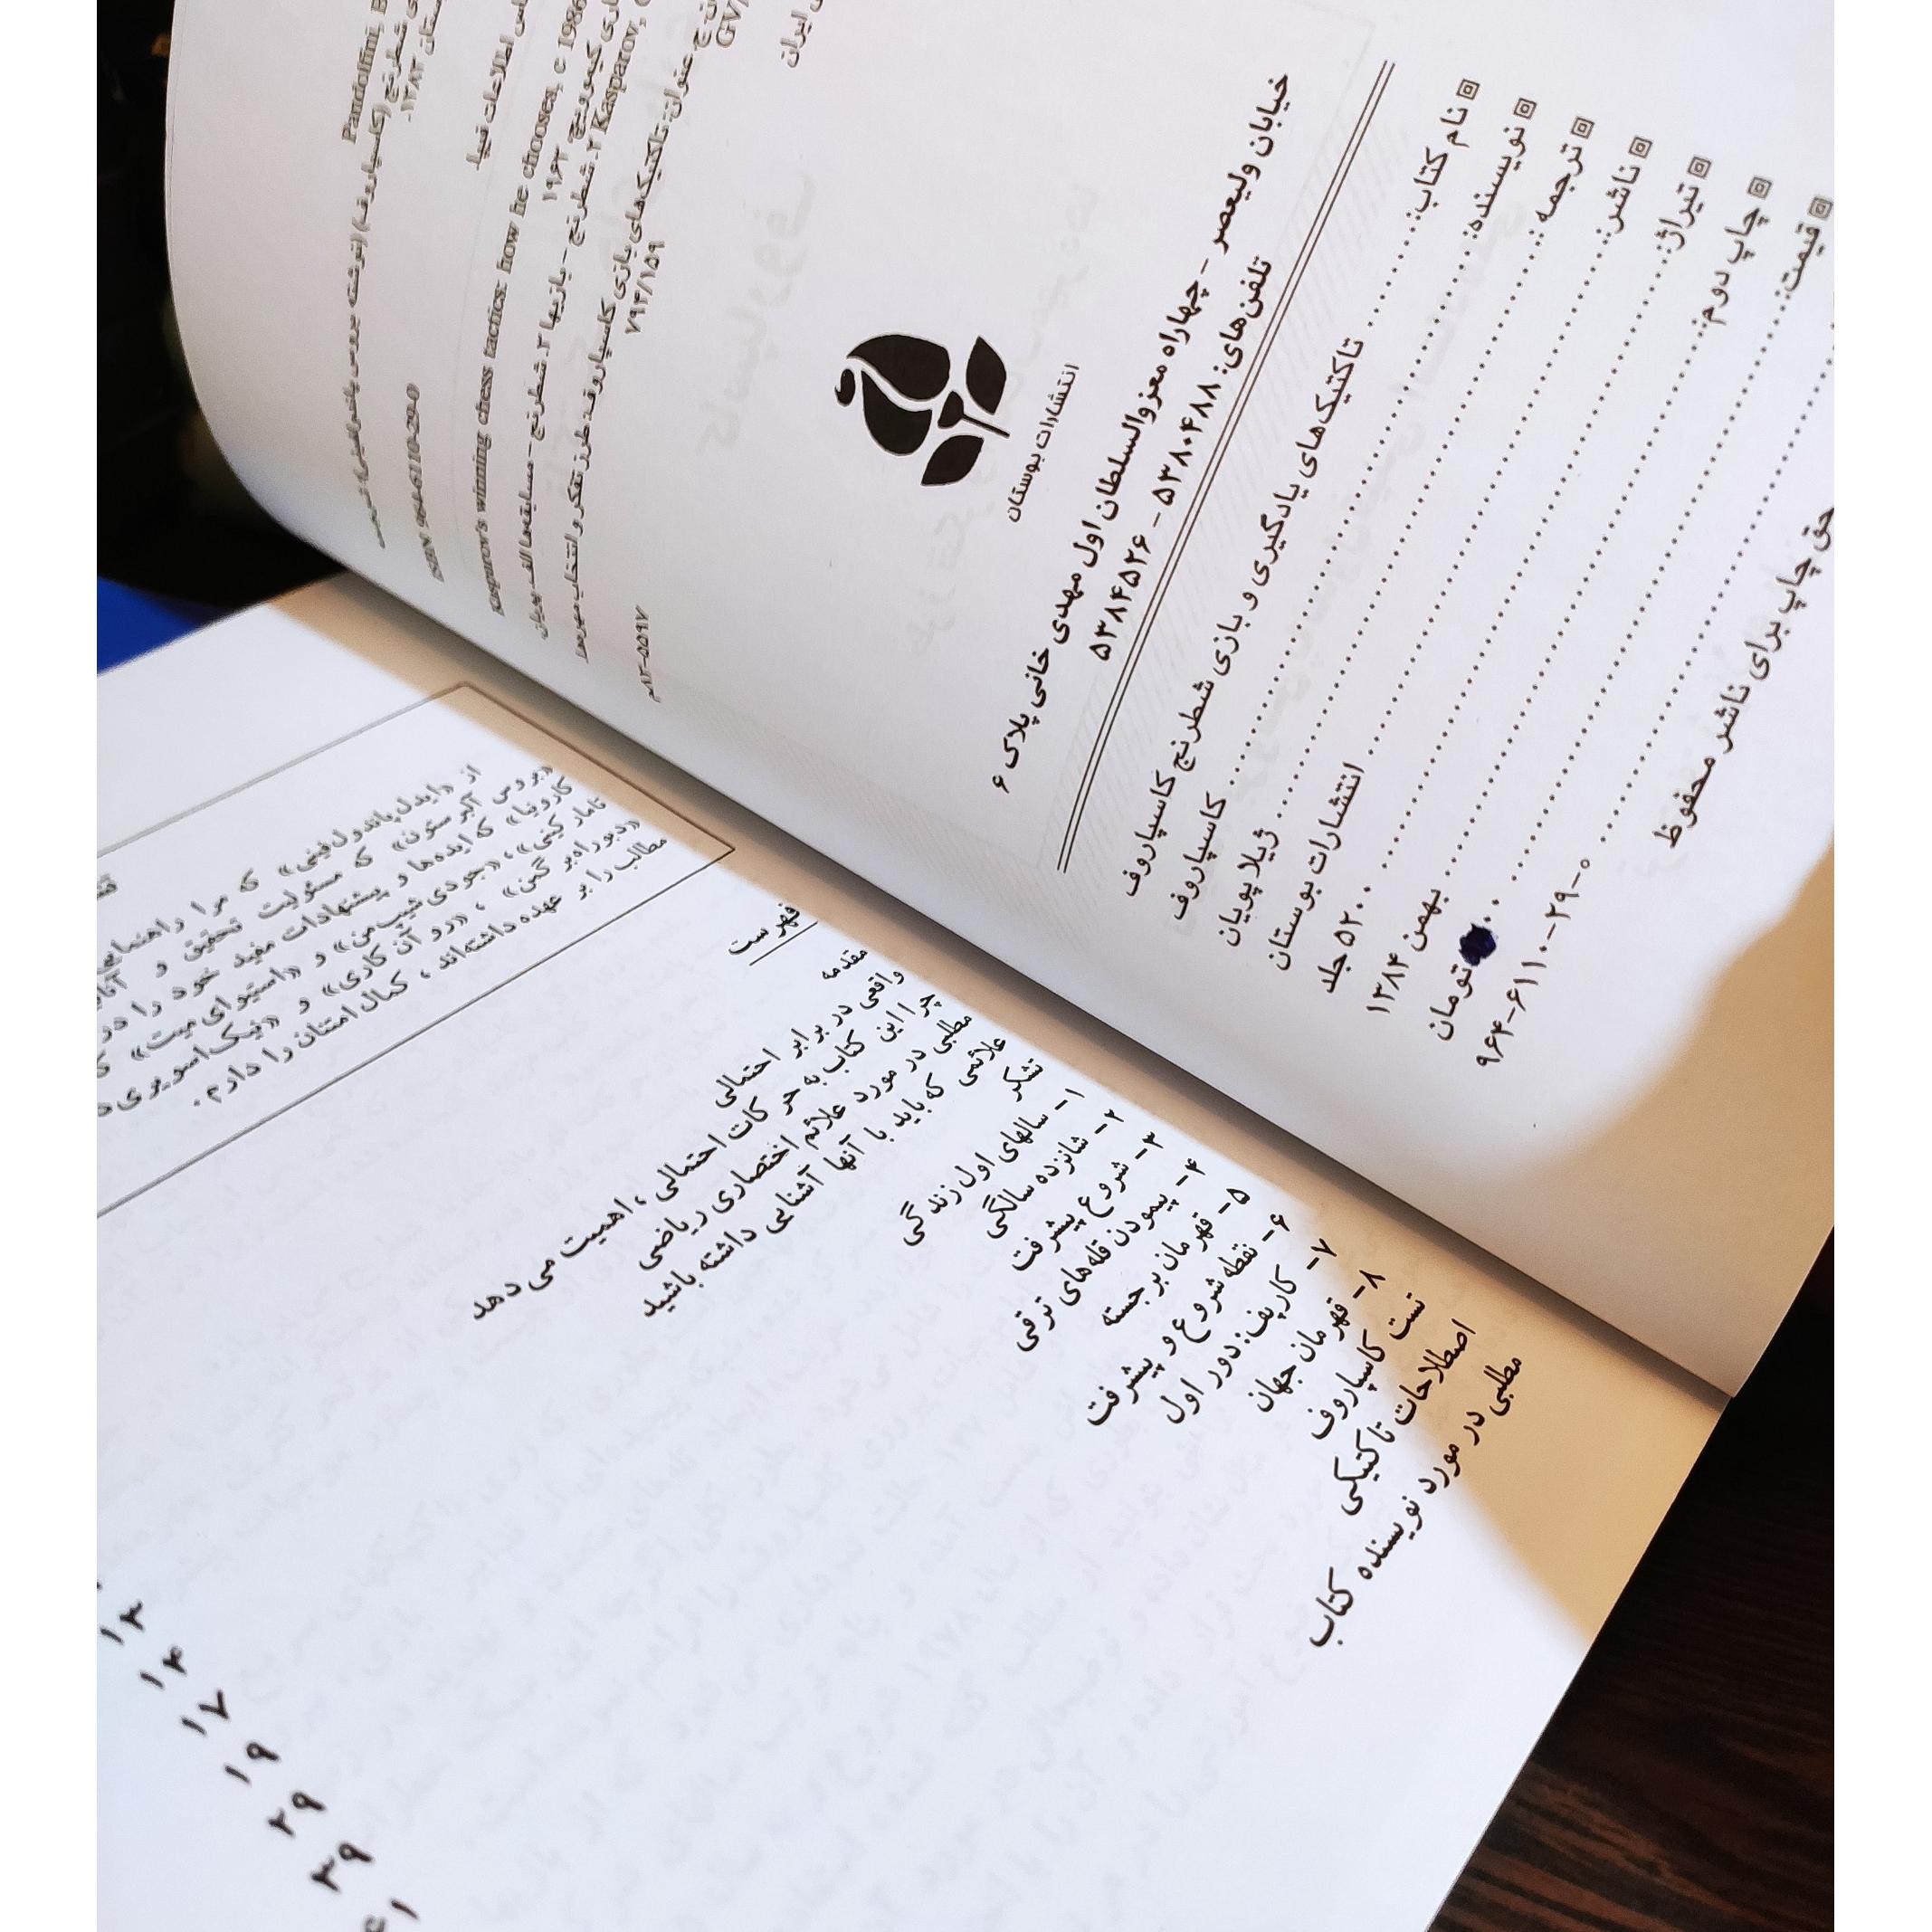 Pandolfini, B
شطرنج (کاسپاروف) (نوشته بروس پاندولفینی)
۱۳۸۲.
ISBN 964-6110-29-0
اطلاعات فیپا
Kasparov's winning chess tactics: how he chooses, c 1986
کیموویچ ۱۹۶۳
۲. شطرنج - بازیها ۳. شطرنج - مسابقه‌ها الف. پویان
Kasparov,
ج عنوان: تاکتیک‌های بازی کاسپاروف: طرز تفکر و انتخاب مهره‌ها
GV
۷۹۴/۱۵۹
ایران
م۸۲-۵۵۹۷
انتشارات بوستان
خیابان ولیعصر - چهاراه معزوالسلطان اول مهدی خانی پلاک ۶
تلفن‌های: ۵۳۸۰۴۸۸ - ۵۳۸۴۵۲۶
نام کتاب: تاکتیک‌های یادگیری و بازی شطرنج کاسپاروف
نویسنده: کاسپاروف
ترجمه: ژیلا پویان
ناشر: انتشارات بوستان
تیراژ: ۵۲۰۰ جلد
چاپ دوم: بهمن ۱۳۸۴
قیمت: تومان
۹۶۴-۶۱۱۰-۲۹-۰
حق چاپ برای ناشر محفوظ
از «ایدل پاندول‌فینی» که مرا راهنمایی
«بروس آلبرستون» که مسئولیت تحقیق و
کارونیا» که ایده‌ها و پیشنهادات مفید خود را در
تامار کینی»، «جودی شیپ‌من» و «استیوای میت»
«دبوراه‌بر گمن»، «رو آن کاری» و «نیک‌اسویری
مطالب را بر عهده داشته‌اند، کمال امتنان را دارم.
فهرست
مقدمه
واقعی در برابر احتمالی
چرا این کتاب به حرکات احتمالی، اهمیت می دهد
مطلبی در مورد علائم اختصاری ریاضی
علائمی که باید با آنها آشنایی داشته باشید
تشکر
۱- سالهای اول زندگی
۲- شانزده سالگی
۳- شروع پیشرفت
۴- پیمودن قله‌های ترقی
۵- قهرمان برجسته
۶- نقطه شروع و پیشرفت
۷- کارپف: دور اول
۸- قهرمان جهان
تست کاسپاروف
اصطلاحات تاکتیکی
مطلبی در مورد نویسنده کتاب
۱۲
۱۴
۱۷
۱۹
۲۹
۳۹